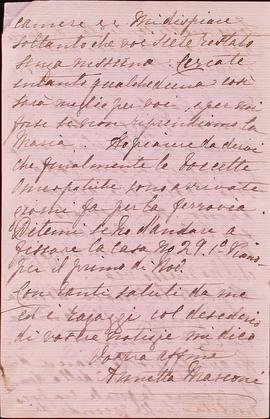 camere ec Mi dispiace
soltanto che voi siete restato
senza nessuna. Cercate
intanto qualcheduna così
sarà meglio per voi e per noi
forse se non riprendiamo la
Maria. Ho piacere da dirvi
che finalmente le boccette
Omeopatiche sono arrivate
giorni fa per la ferrovia.
Ditemi se ho d'andare a
fissare la casa No 29. 1o Piano
per il primo di Nov.
Con tanti saluti da me
ed e ragazzi col desiderio
di vostre notizie mi dico
Vostra affma
Annetta Marconi